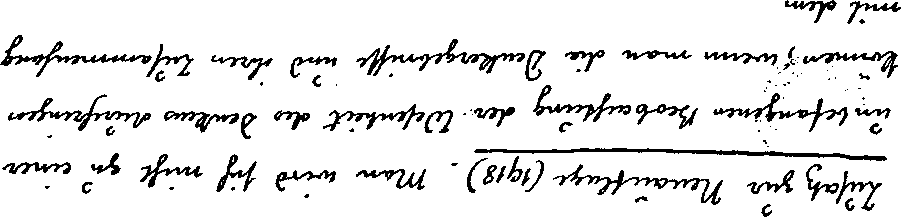 Zusatz zur Neuauflage (1918). Man wird sich nicht zu einer
unbefangenen Beobachtung der Wesenheit des Denkens durchringen
können, wenn man die Denkergebnisse und ihren Zusammenhang
mit dem